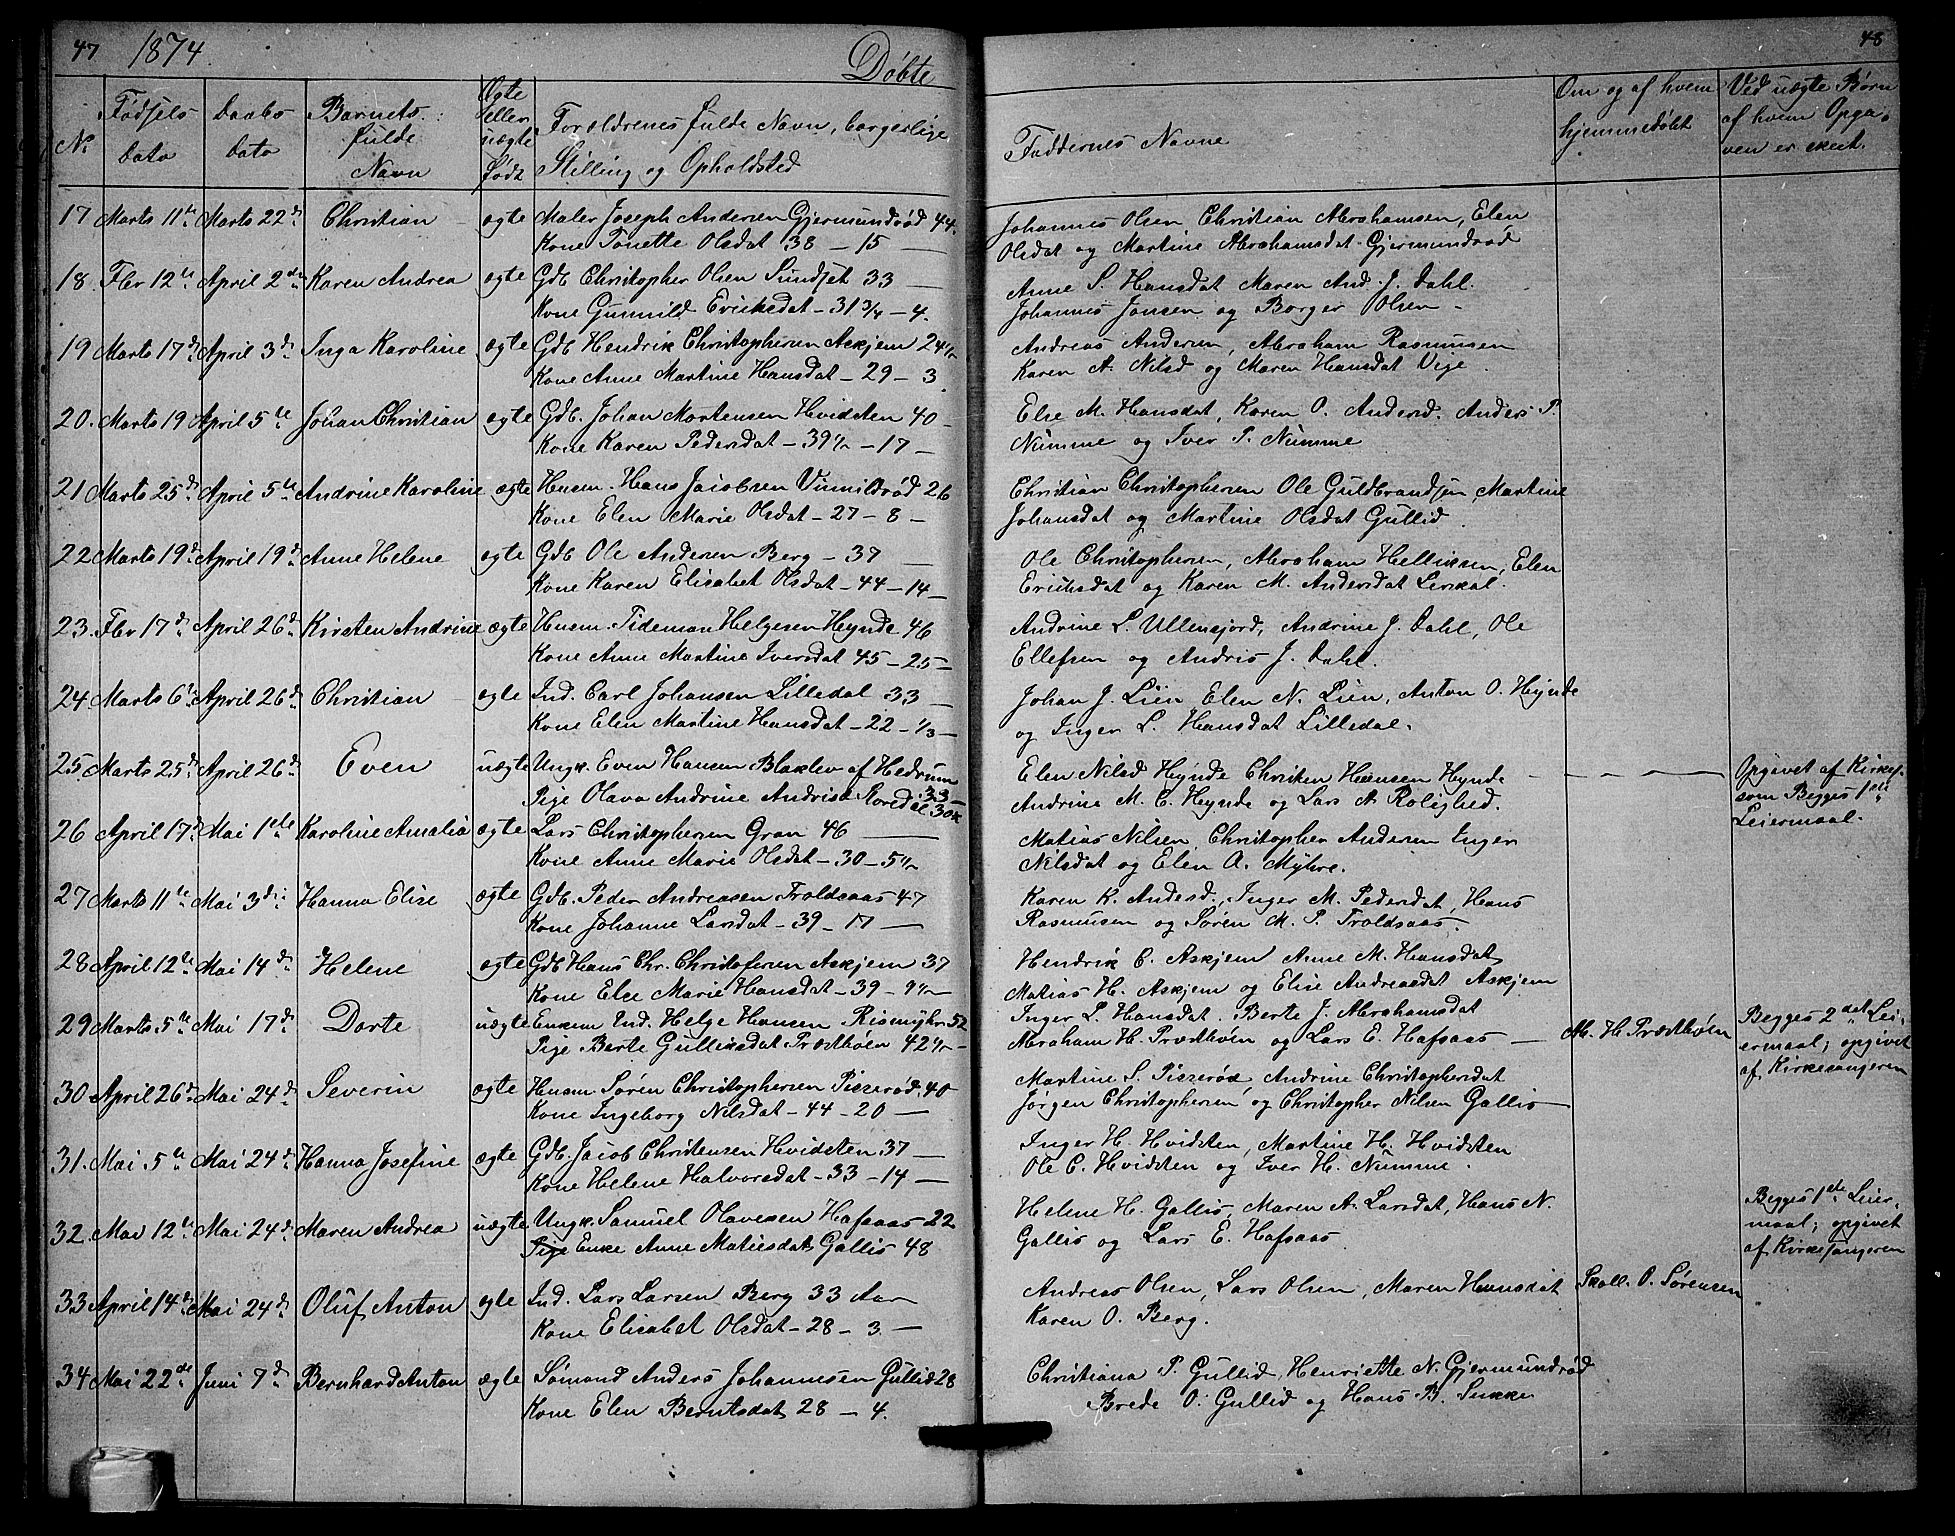 47 1874. Døbte 48
No
Fødsels dato
Daabs dato
Barnets fulde Navn
Ægte eller uægte født
Forældrenes fulde Navn, borgerlige Stilling og Opholdsted
Faddernes Navne
Om og af hvem hjemmedøbt
Ved uægte Børn af hvem Opga- ven er skeet.
17 Marts 11te Marts 22de Christian ægte Maler Joseph Andersen Gjermundrød 44.
Kone Tonette Olsdat 38 – 15 —
Johannes Olsen Christian Abrahamsen, Elen
Olsdat og Martine Abrahamsdat Gjermundrød
18. Fbr 12te April 2den Karen Andrea ægte Gdb Christopher Olsen Sundset 33 —
Kone Gunnild Eriksdat – 31 3/4 – 4.
Anne S. Hansdat Maren And. J. Dahl.
Johannes Jansen og Borger Olsen –
19 Marts 17de April 3de Inga Karoline ægte Gdb Hendrik Christophersen Askjem 24 1/2
Kone Anne Martine Hansdat – 29 – 3.
Andreas Andersen, Abraham Rasmusen
Karen A. Nilsd og Maren Hansdat Vige.
20. Marts 19 April 5te Johan Christian ægte Gdb. Johan Mortensen Hvidsten 40 –
Kone Karen Pedersdat – 39 1/2 – 17 –
Else M. Hansdat, Karen O. Andersd. Anders P.
Numme og Iver P. Numme
21 Marts 25de April 5te Andrine Karoline ægte Husm. Hans Jacobsen Vimildrød 26
Kone Elen Marie Olsdat – 27 – 8 –
Christian Christophersen Ole Guldbrandsen, Martine
Johansdat og Martine Olsdat Gullid.
22 Marts 19de April 19de Anne Helene ægte Gdb Ole Andersen Berg – 37 —
Kone Karen Elisabet Olsdat – 44 – 14 –
Ole Christophersen, Abraham Helliksen, Elen
Eriksdat og Karen M. Andersdat Lerskal.
23. Fbr 17de April 26de Kirsten Andrine ægte Husm. Tideman Helgesen Heynde 46
Kone Anne Martine Iversdat 45 – 25 –
Andrine L. Ullensjord, Andrine J. Dahl, Ole
Ellefsen og Andris J. Dahl.
24. Marts 6te April 26de Christian ægte Ind. Carl Johansen Lilledal 33 —
Kone Elen Martine Hansdat – 22 – 1/3 –
Johan J. Lien, Elen N. Lien, Anton O. Heynde
og Inger L. Hansdat Lilledal.
25. Marts 25de April 26de Even uægte Ungk. Even Hansen Blaklev af Hedrum 33 –
Pige Olava Andrine Andrisd Storedal 30
Elen Nilsd Heynde Chrisken Hansen Heynde
Andrine M. E. Heynde og Lars A. Rolighed.
Opgivet af Kirkes. som Begges 1ste Leiermaal.
26 April 17de Mai 1ste Karoline Amalia ægte Lars Christophersen Gran 46 —
Kone Anne Marie Olsdat – 30 – 5 1/2 –
Matias Nilsen, Christopher Andersen Inger
Nilsdat og Elen A. Myhre.
27 Marts 11te Mai 3die Hanna Elise ægte Gdb. Peder Andreasen Troldsaas 47
Kone Johanne Larsdat – 39 – 17 —
Karen K. Andersd., Inger M. Pedersdat, Hans
Rasmusen og Søren M. P. Troldsaas.
28 April 12te Mai 14de Helene ægte Gdb Hans Chr. Christofersen Askjem 37
Kone Else Marie Hansdat – 39 – 9 1/2 –
Hendrik C. Askjem Anne M. Hansdat
Matias H. Askjem og Elise Andreasdat Askjem
29 Marts 5te Mai 17de Dorte uægte Enkem Ind. Helge Hansen Rismyhr 52
Pige Berte Gulliksdat Præsthøen 42 1/2 –
Inger L. Hansdat. Berte J. Abrahamsdat
Abraham H. Præsthøen og Lars E. Hafsaas —
Ab. H. Præsthøen
Begges 2det Lei- ermaal; opgivet af Kirkesangeren
30 April 26de Mai 24de Severin ægte Husm. Søren Christophersen Pisserød. 40
Kone Ingeborg Nilsdat – 44 – 20 —
Martine S. Pisserød Andrine Christophersdat
Jørgen Christophersen og Christopher Nilsen Gallis –
31. Mai 5te Mai 24de Hanna Josefine ægte Gdb. Jacob Christensen Hvidsten 37 —
Kone Helene Halvorsdat – 33 – 14 —
Inger H. Hvidsten, Martine H. Hvidsten
Ole C. Hvidsten og Iver H. Numme.
32. Mai 12te Mai 24de Maren Andrea uægte Ungk. Samuel Olavesen Hafsaas 22
Pige Enke Anne Matiesdat Gallis 48
Helene H. Gallis, Maren A. Larsdat, Hans N.
Gallis og Lars E. Hafsaas.
Begges 1ste Leier- maal; opgivet af Kirkesangeren
33 April 14de Mai 24de Oluf Anton ægte Ind. Lars Larsen Berg 33 Aar
Kone Elisabet Olsdat – 28 – 3 —
Andreas Olsen, Lars Olsen, Maren Hansdat
Karen O. Berg.
Skoll. O. Sørensen
34 Mai 22de Juni 7de Bernhard Anton ægte Sømand Anders Johannesen Gullid 28
Kone Elen Berntsdat 28 – 4.
Christiana P. Gullid, Henriette N. Gjermundrød
Brede O. Gullid og Hans B. Sukke